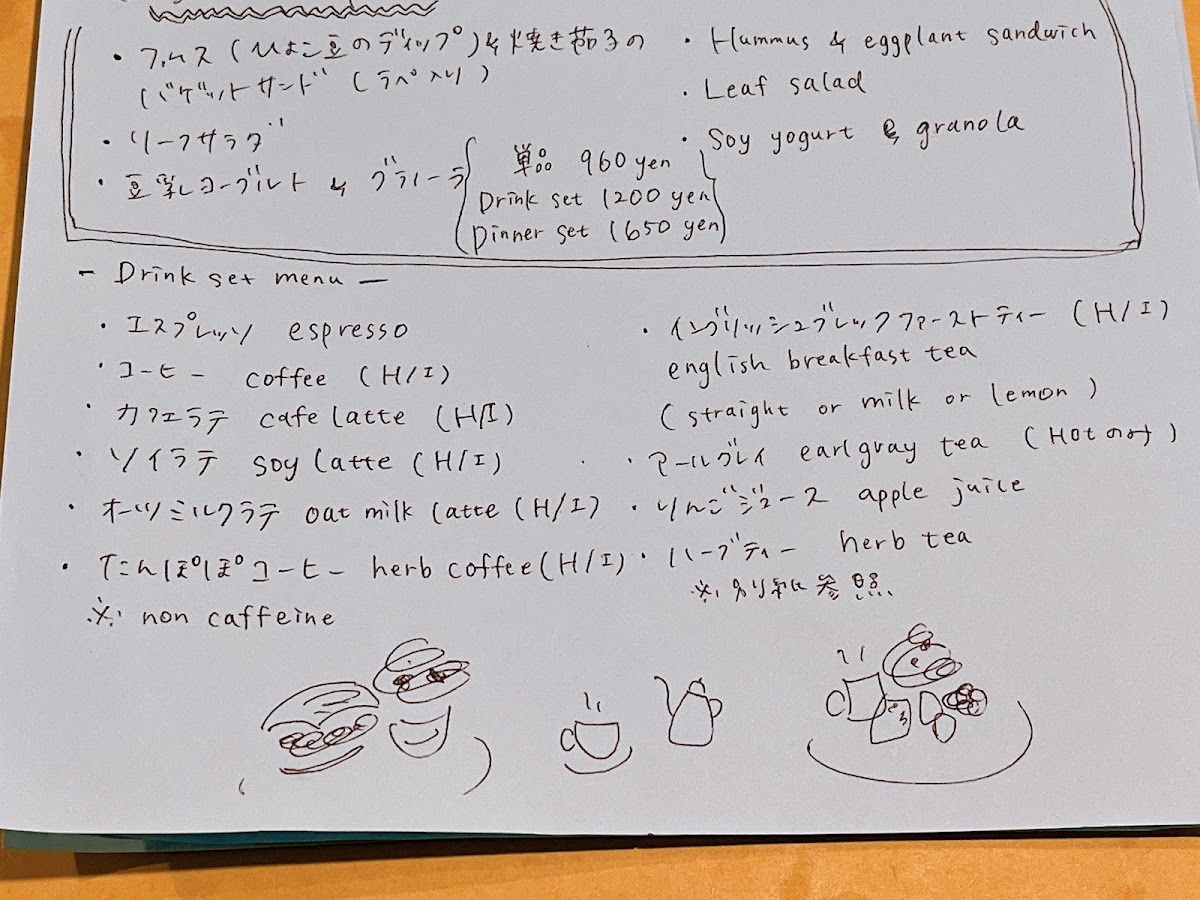 ・フムス(ひよこ豆のディップ)&焼き茄子の
バゲットサンド(ラペ入り)
・リーフサラダ
・豆乳ヨーグルト & グラノーラ
・Hummus & eggplant sandwich
・Leaf salad
・Soy yogurt & granola
単品 960 yen
Drink set 1200 yen
Dinner set 1650 yen
- Drink set menu -
・エスプレッソ espresso
・コーヒー coffee (H/I)
・カフェラテ cafe latte (H/I)
・ソイラテ soy latte (H/I)
・オーツミルクラテ oat milk latte (H/I)
・たんぽぽコーヒー herb coffee (H/I)
※ non caffeine
・イングリッシュブレックファーストティー (H/I)
english breakfast tea
(straight or milk or lemon)
・アールグレイ earlgray tea (Hotのみ)
・りんごジュース apple juice
・ハーブティー herb tea
※別紙参照